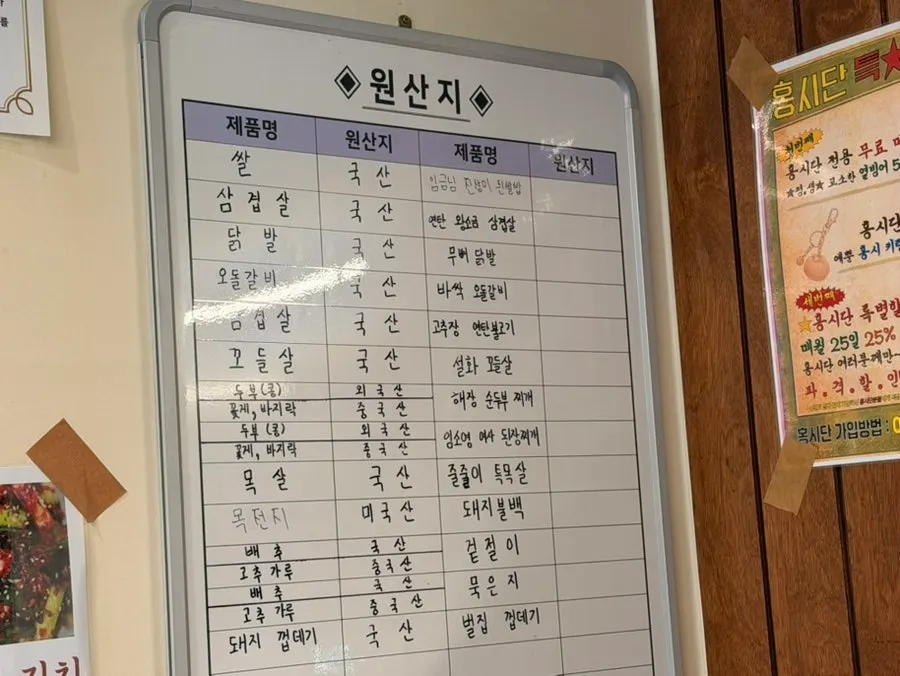 를
◈원산지◈
제품명 원산지 제품명 원산지
쌀 국산 임금님
삼겹살 국산 연탄 왕소금 삼겹살
닭발 국산 무뼈 닭발
오돌갈비 국산 바싹 오돌갈비
삼겹살 국산 고추장 연탄불고기
꼬들살 국산 설화 꼬들살
두부(콩) 외국산 해장 순두부 찌개
꽃게, 바지락 중국산
두부(콩) 외국산 임소영 여사 된장찌개
꽃게, 바지락 중국산
목살 국산 줄줄이 특목살
목전지 미국산 돼지불백
배추 국산 겉절이
고추가루 중국산
배추 국산 묵은지
고추가루 중국산
돼지 껍데기 국산 벌집 껍데기
홍시단 특
첫번째
홍시단 전용 무료
고소한 열빙어 5
홍시단
예쁜 홍시 키링
세번째
★홍시단 특별할
매월 25일 25%
홍시단 여러분께만~
파.격.할.인
홍시단 가입방법 :
김치